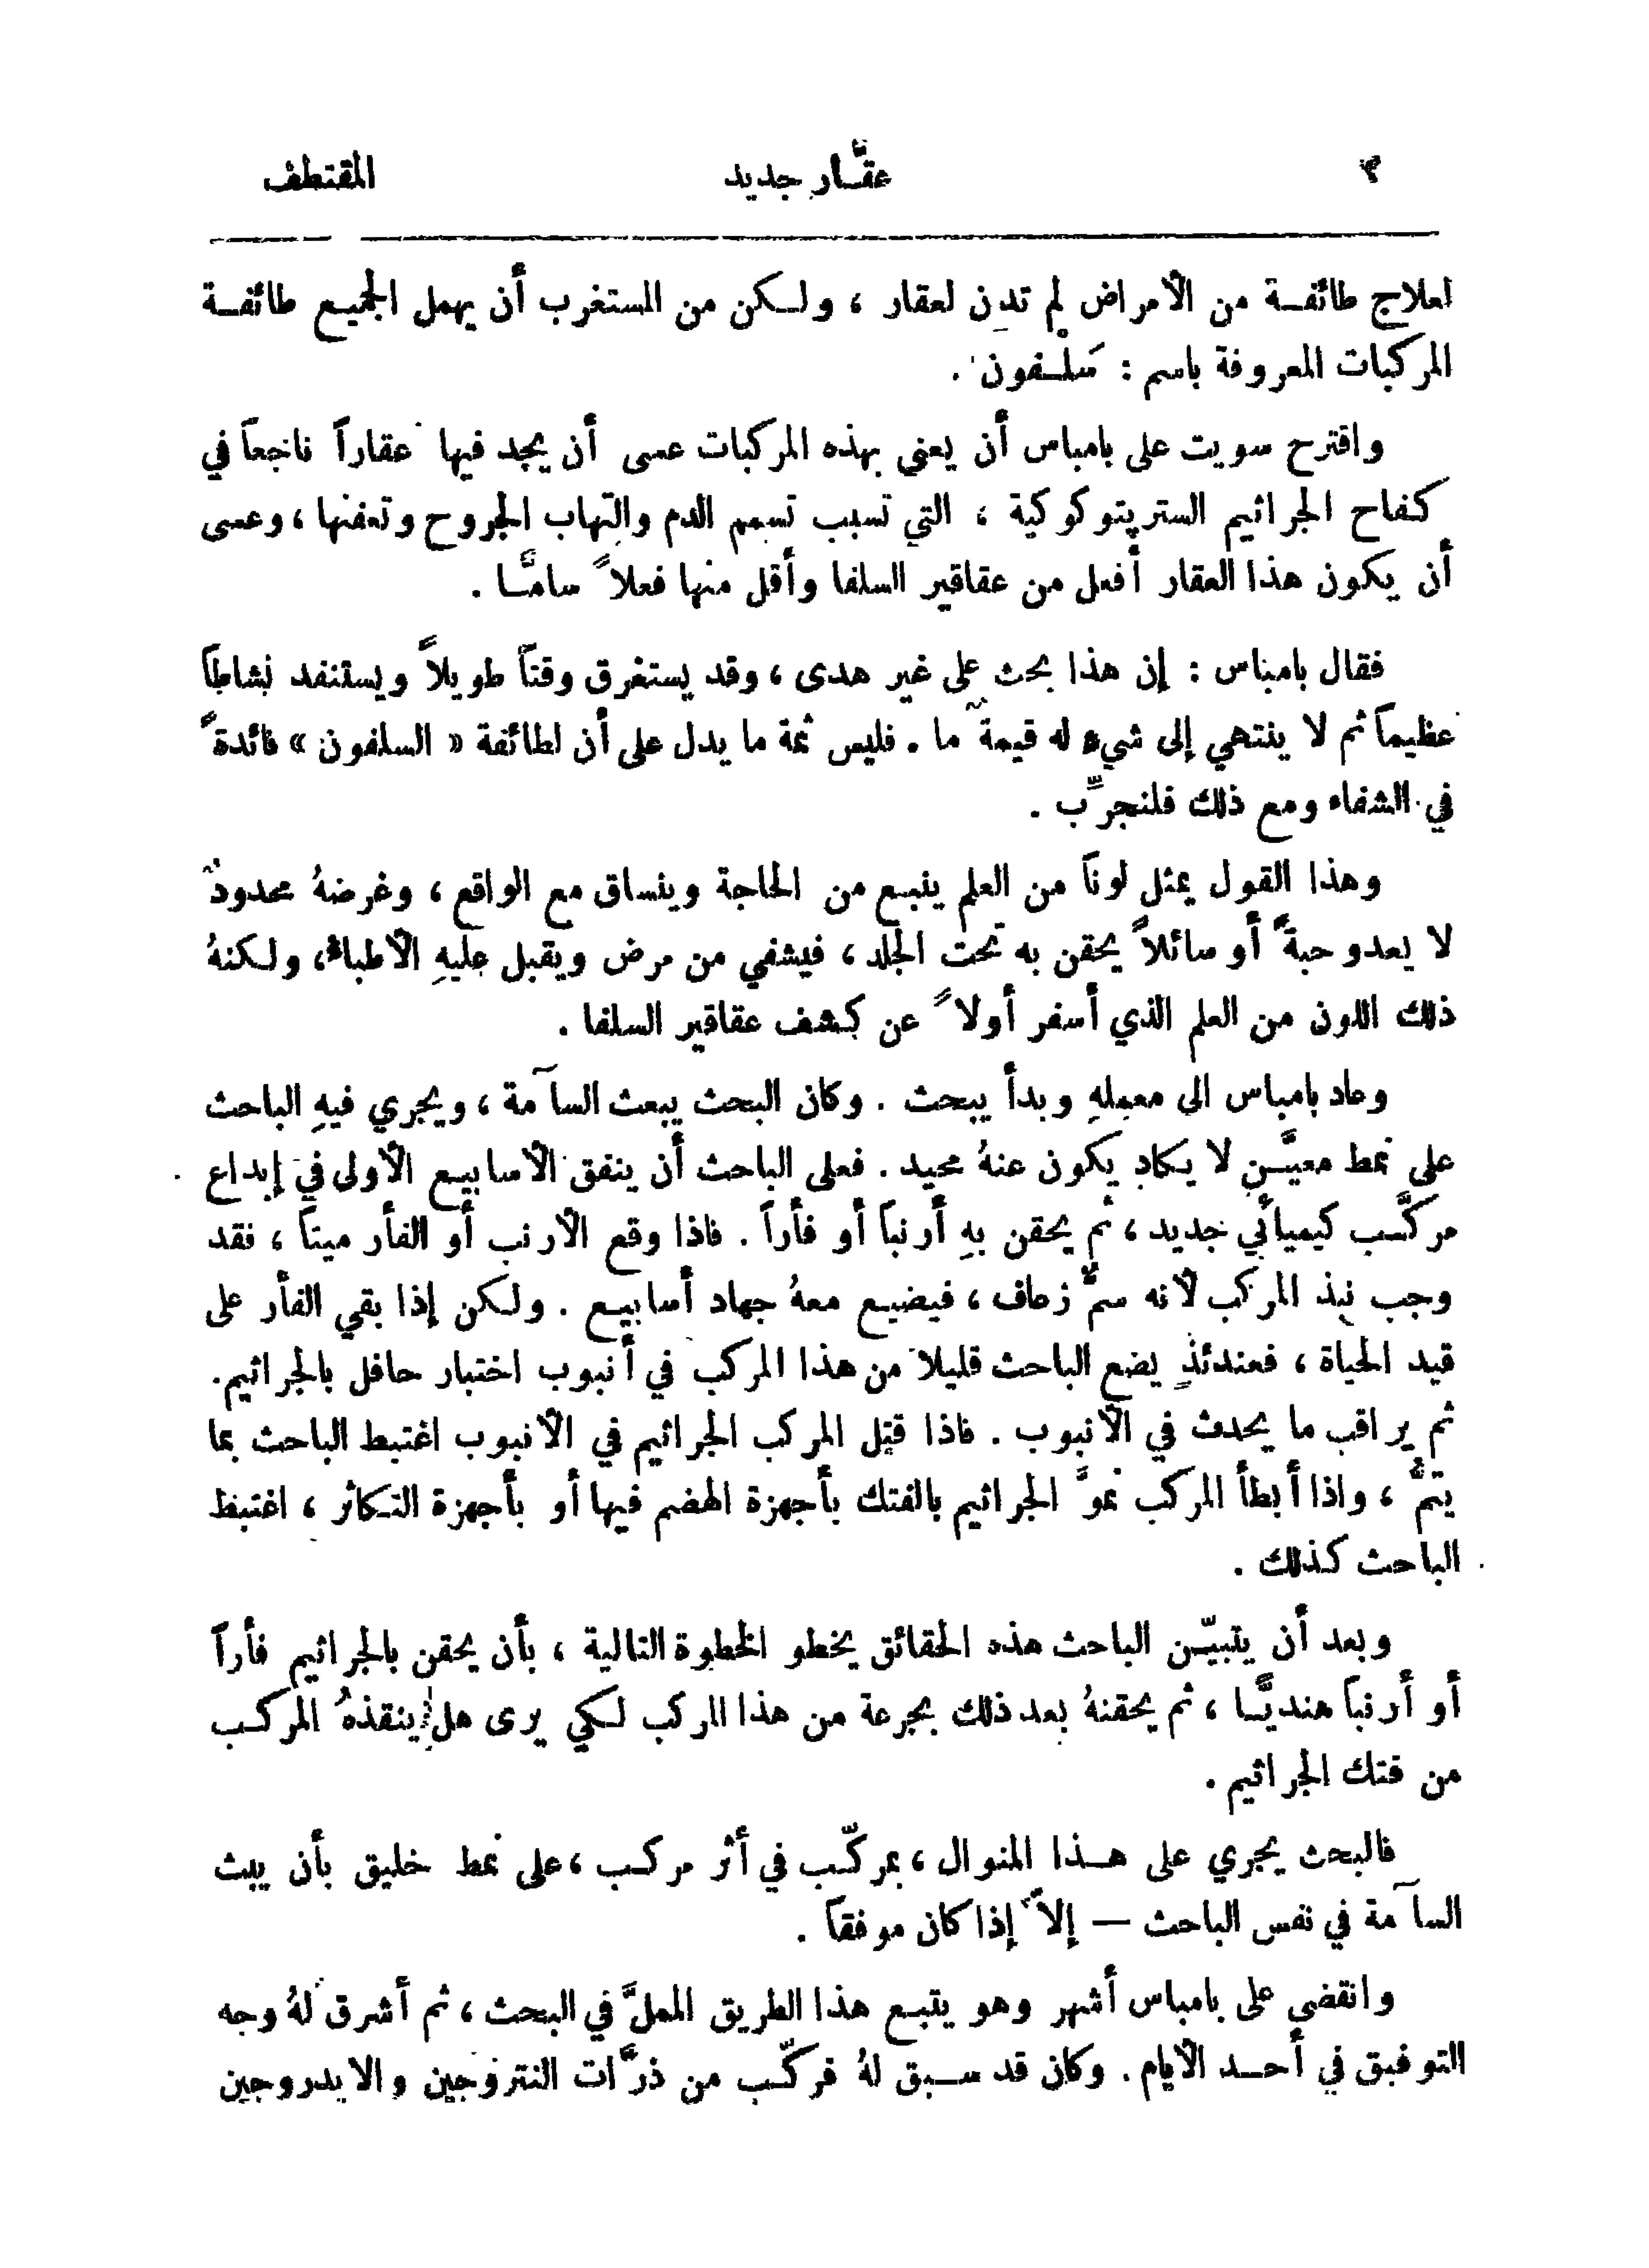 ٢ عقَّار جديد المقتطف
لعلاج طائفة من الأمراض لم تدن لعقار ، ولكن من المستغرب أن يهمل الجميع طائفة
المركبات المعروفة باسم : سَلْفون .
واقترح سويت على بامباس أن يعنى بهذه المركبات عسى أن يجد فيها عقاراً ناجعاً في
كفاح الجراثيم الستربتوكوكية ، التي تسبب تسمم الدم والتهاب الجروح وتعفنها ، وعسى
أن يكون هذا العقار أفعل من عقاقير السلفا وأقل منها فعلاً سامًّا .
فقال بامباس : إن هذا بحث على غير هدى ، وقد يستغرق وقتاً طويلاً ويستنفد نشاطاً
عظيماً ثم لا ينتهي إلى شيء له قيمةٌ ما . فليس ثمة ما يدل على أن لطائفة « السلفون » فائدةً
في الشفاء ومع ذلك فلنجرِّب .
وهذا القول يمثل لوناً من العلم ينبع من الحاجة وينساق مع الواقع ، وغرضهُ محدودٌ
لا يعدو حبةً أو سائلاً يحقن به تحت الجلد ، فيشفي من مرض ويقبل عليهِ الأطباءُ، ولكنهُ
ذلك اللون من العلم الذي أسفر أولاً عن كشف عقاقير السلفا .
وعاد بامباس الى معملهِ وبدأ يبحث . وكان البحث يبعث السآمة ، ويجري فيهِ الباحث
على نمط معيَّن لا يكاد يكون عنهُ محيد . فعلى الباحث أن ينفق الأسابيع الأولى في إبداع
مركَّب كيميائي جديد ، ثم يحقن بهِ أرنباً أو فأراً . فاذا وقع الأرنب أو الفأر ميتاً ، فقد
وجب نبذ المركب لأنه سمٌّ زعاف ، فيضيع معهُ جهاد أسابيع . ولكن إذا بقي الفأر على
قيد الحياة ، فعندئذٍ يضع الباحث قليلا من هذا المركب في أنبوب اختبار حافل بالجراثيم.
ثم يراقب ما يحدث في الأنبوب . فاذا قتل المركب الجراثيم في الأنبوب اغتبط الباحث بما
يتمُّ ، واذا أبطأ المركب نموَّ الجراثيم بالفتك بأجهزة الهضم فيها أو بأجهزة التكاثر ، اغتبط
الباحث كذلك .
وبعد أن يتبيّن الباحث هذه الحقائق يخطو الخطوة التالية ، بأن يحقن بالجراثيم فأراً
أو أرنباً هنديًّا ، ثم يحقنهُ بعد ذلك بجرعة من هذا المركب لكي يرى هل ينقذهُ المركب
من فتك الجراثيم .
فالبحث يجري على هذا المنوال ، بمركّب في أثر مركب ، على نمط خليق بأن يبث
السآمة في نفس الباحث — إلاَّ إذا كان موفقاً .
وانقضى على بامباس أشهر وهو يتبع هذا الطريق المملَّ في البحث ، ثم أشرق لهُ وجه
التوفيق في أحد الأيام . وكان قد سبق لهُ فركّب من ذرَّات النتروجين والايدروجين